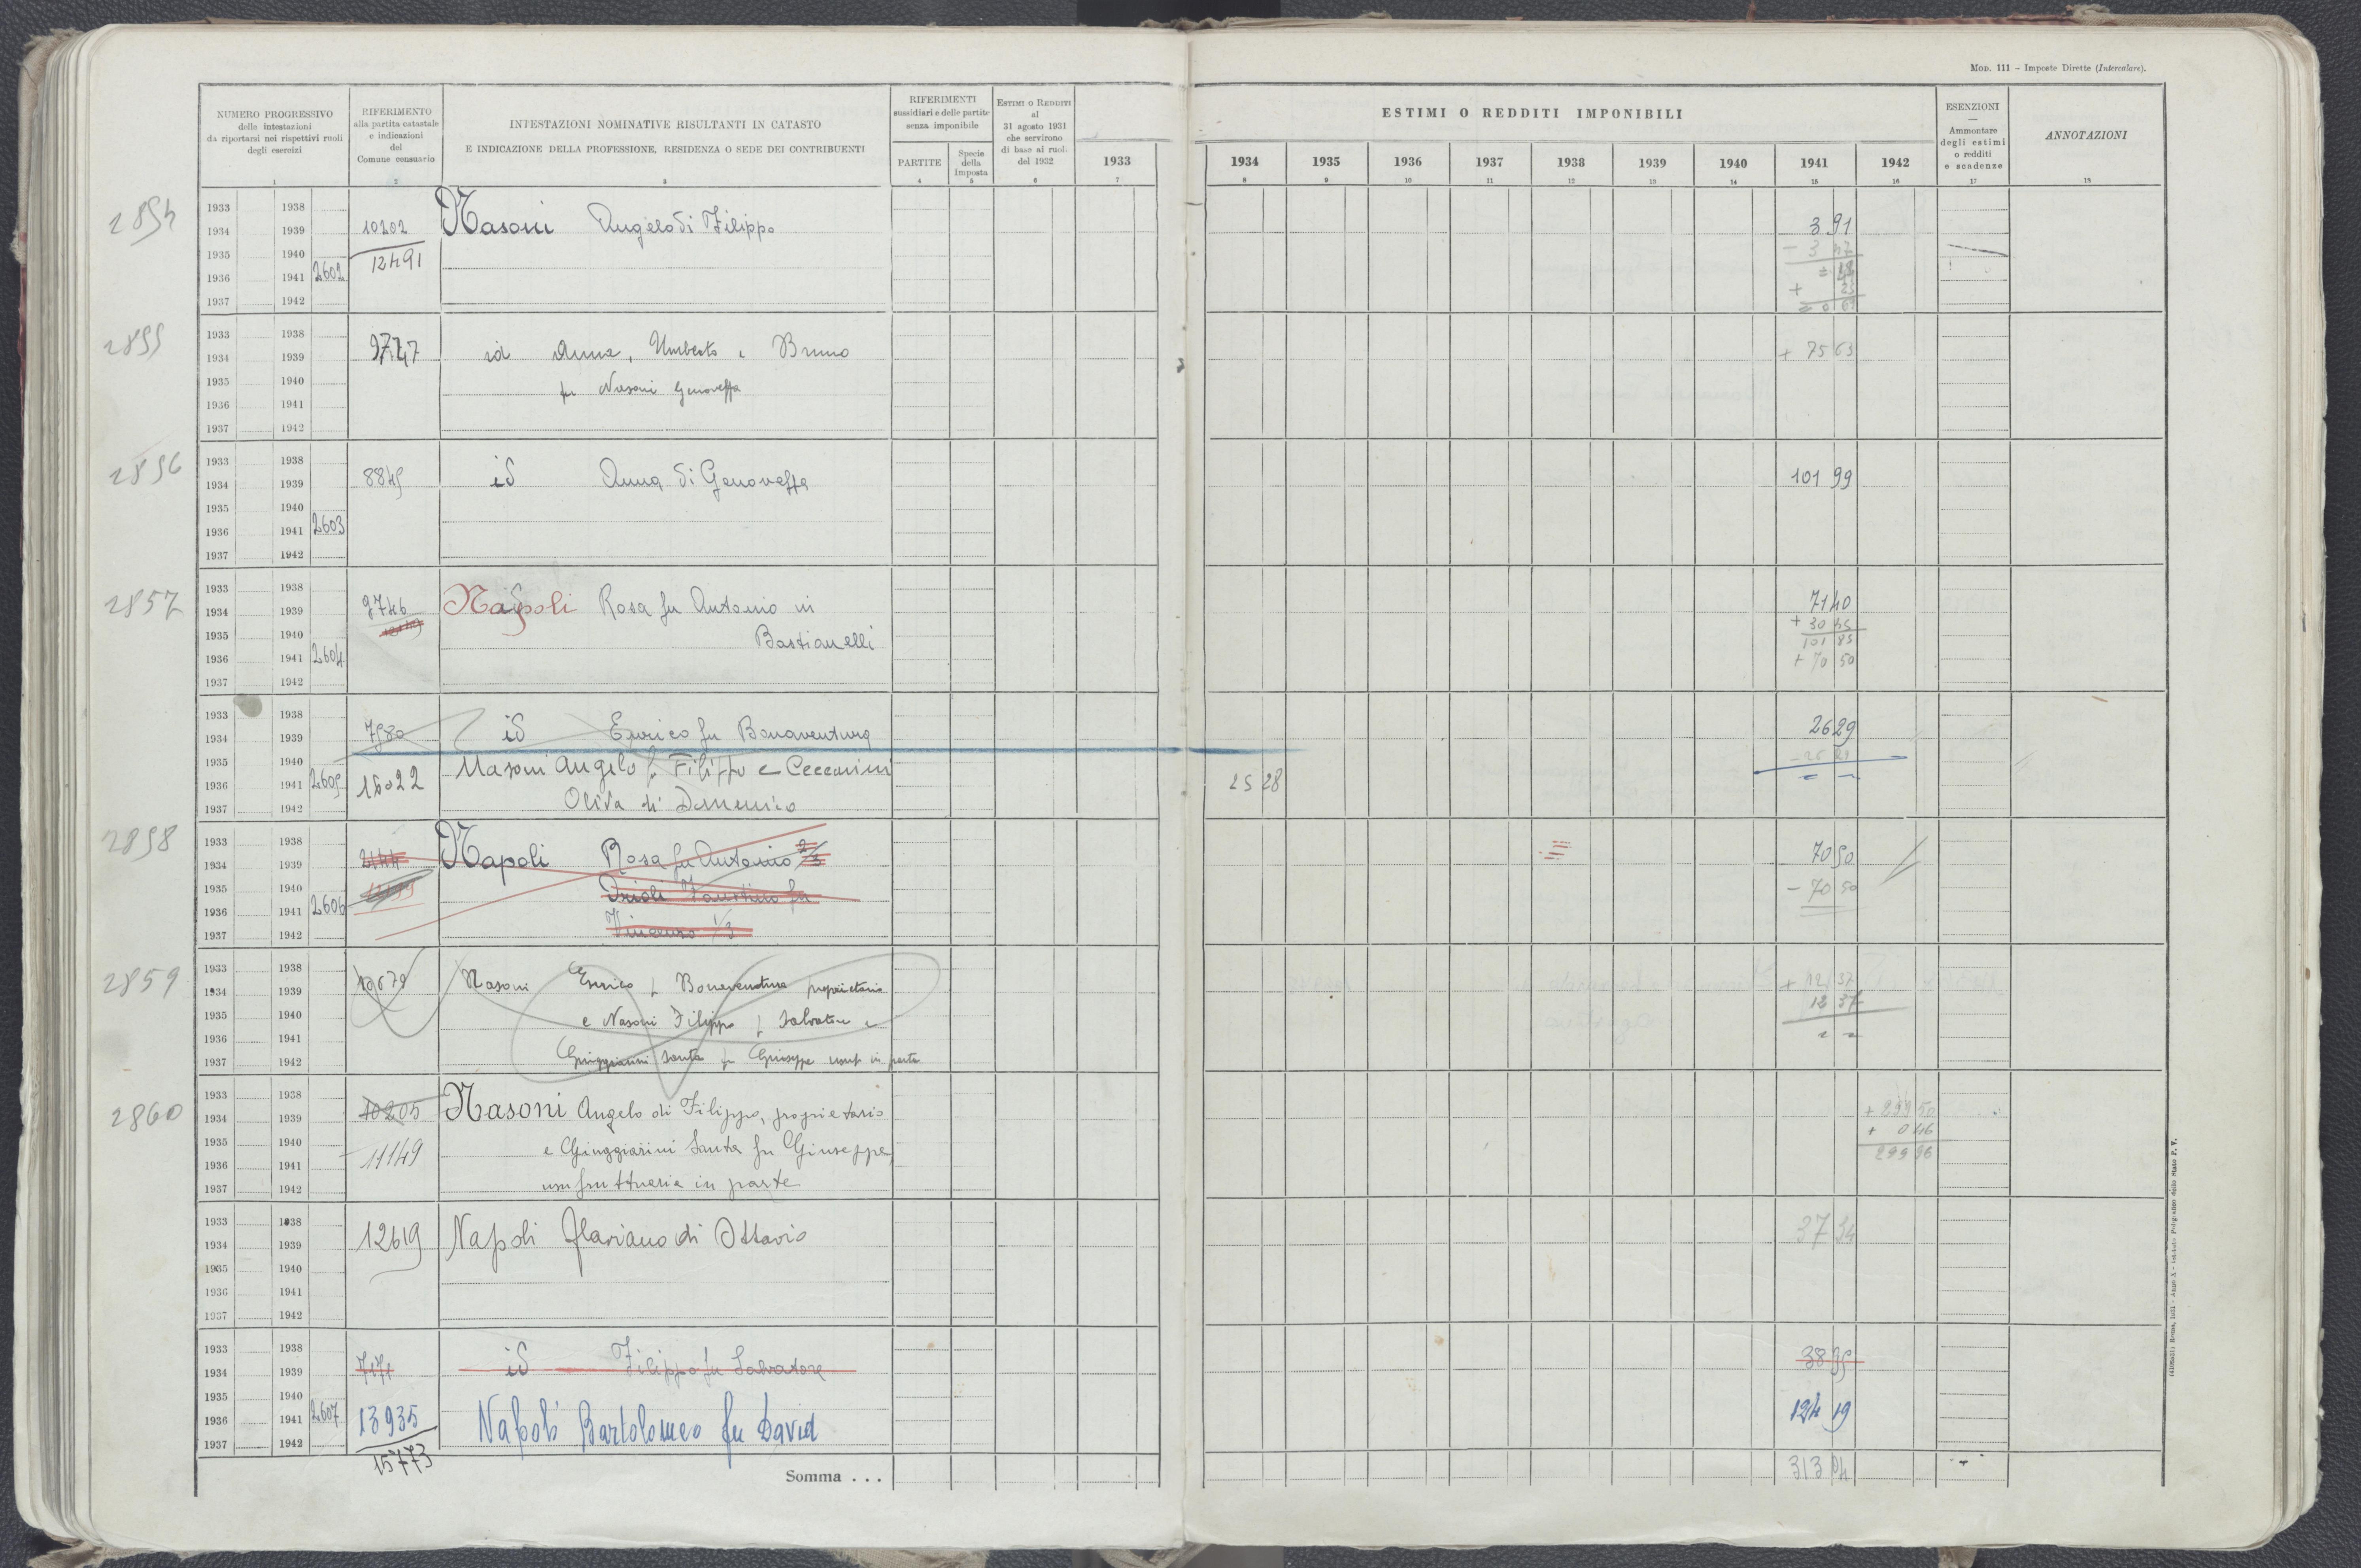 Mod. 111 - Imposte Dirette (Intercalare).
NUMERO PROGRESSIVO
delle intestazioni
da riportarsi nei rispettivi ruoli
degli esercizi
1
RIFERIMENTO
alla partita catastale
e indicazioni
del
Comune censuario
2
INTESTAZIONI NOMINATIVE RISULTANTI IN CATASTO
E INDICAZIONE DELLA PROFESSIONE, RESIDENZA O SEDE DEI CONTRIBUENTI
3
RIFERIMENTI
sussidiari e delle partite
senza imponibile
PARTITE
4
Specie
della
Imposta
5
ESTIMI O REDDITI
al
31 agosto 1931
che servirono
di base ai ruoli
del 1932
6
1933
7
ESTIMI O REDDITI IMPONIBILI
1934 1935 1936 1937 1938 1939 1940 1941 1942
8 9 10 11 12 13 14 15 16
ESENZIONI
Ammontare
degli estimi
o redditi
e scadenze
17
ANNOTAZIONI
18
2854
1933 1938
1934 1939 10202 Nasoni Angelo di Filippo 3 91
1935 1940 12491 - 3 47
1936 1941 2602
1937 1942
2855
1933 1938
1934 1939 9747 id Anna, Umberto e Bruno + 75 63
1935 1940 fu Nasoni Genoveffa
1936 1941
1937 1942
2856
1933 1938
1934 1939 8845 id Anna di Genoveffa 101 99
1935 1940
1936 1941 2603
1937 1942
2857
1933 1938
1934 1939 9746 Napoli Rosa fu Antonio in 71 40
1935 1940 Bastianelli + 30 45
1936 1941 2604 101 85
1937 1942 + 70 50
1933 1938
1934 1939 7980 id Enrico fu Bonaventura 26 29
1935 1940 Nasoni Angelo fu Filippo e Ceccarini - 26 29
1936 1941 2605 16022 25 28
1937 1942 Oliva di Domenico
2858
1933 1938
1934 1939 2144 Napoli Rosa fu Antonio 2/3 70 50
1935 1940 Faustino fu - 70 50
1936 1941 2606
1937 1942 Vincenzo 1/3
2859
1933 1938
1934 1939 10679 Nasoni Enrico fu Bonaventura proprietario + 12 37
1935 1940 e Nasoni Filippo fu Salvatore e 12 37
1936 1941
1937 1942 Ginggiarini Santa fu Giuseppe usuf in parte
2860
1933 1938
1934 1939 10205 Nasoni Angelo di Filippo, proprietario + 299 50
1935 1940 e Ginggiarini Santa fu Giuseppe + 0 46
1936 1941 11149 299 96
1937 1942 usufruttuaria in parte
1933 1938
1934 1939 12619 Napoli Flaviano di Ottavio 37 34
1935 1940
1936 1941
1937 1942
1933 1938
1934 1939 7171 id Filippo fu Salvatore 38 95
1935 1940
1936 1941 2607 13935 Napoli Bartolomeo fu David 124 19
1937 1942
15773
Somma . . . 313 04